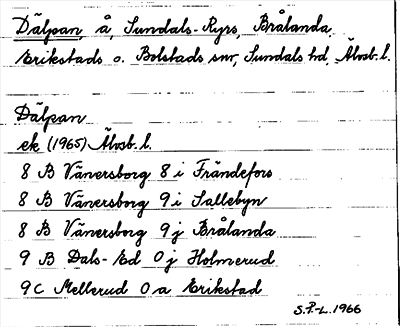 Dälpan, å, Sundals-Ryrs, Brålanda,
Erikstads o. Bolstads snr, Sundals hd, Älvsb. l.
Dälpan
ek (1965) Älvsb. l.
8 B Vänersborg 8 i Frändefors
8 B Vänersborg 9 i Sallebyn
8 B Vänersborg 9 j Brålanda
9 B Dals-Ed 0 j Holmerud
9 C Mellerud 0 a Erikstad
S.P-L. 1966